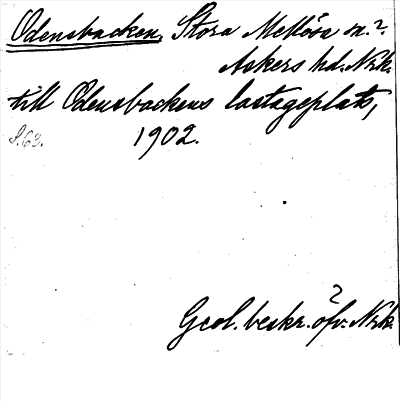 Odensbacken, Stora Mellösa sn.?
Askers hd. Nrk.
till Odensbackens lastageplats,
S. 63. 1902.
?
Geol. beskr. öfv. Nrk.